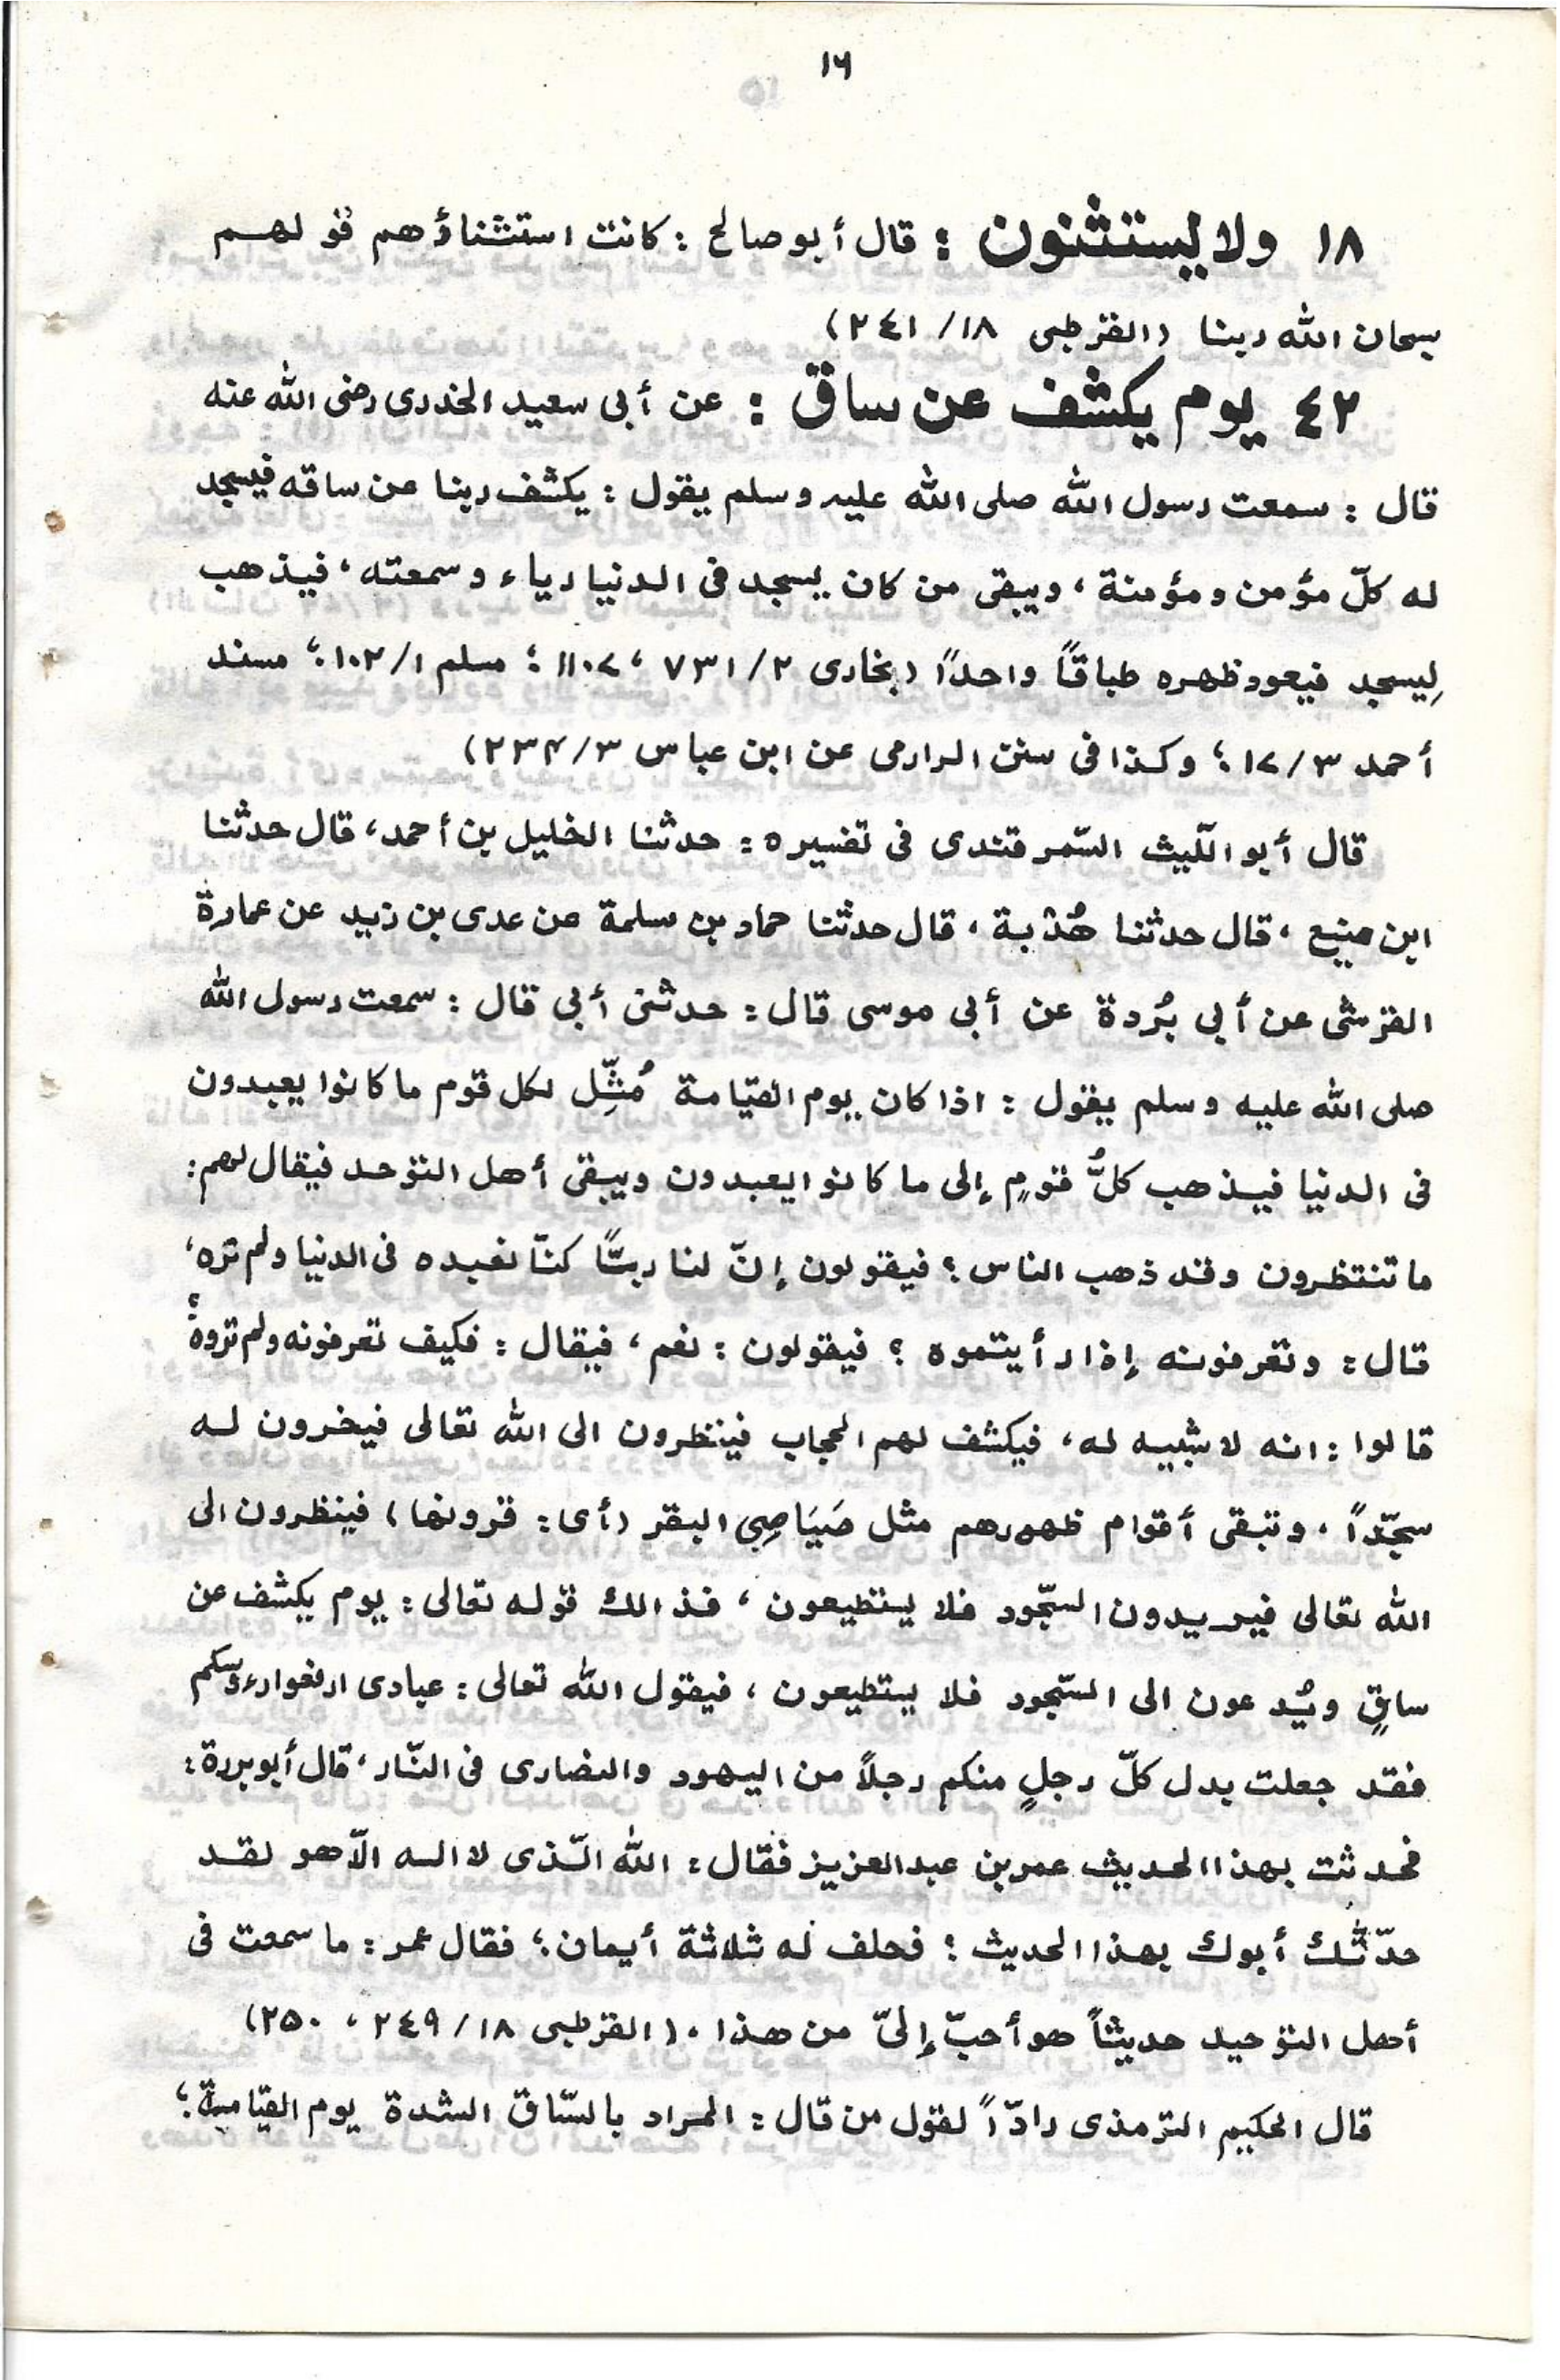 ١٦
١٨ ولا يستثنون : قال أبو صالح : كانت استثناؤهم قولهم
سبحان الله ربنا (القرطبى ١٨/ ٢٤١)
٤٢ يوم يكشف عن ساق : عن أبى سعيد الخدرى رضى الله عنه
قال : سمعت رسول الله صلى الله عليه وسلم يقول : يكشف ربنا عن ساقه فيسجد
له كلّ مؤمن ومؤمنة ، ويبقى من كان يسجد فى الدنيا رياء وسمعته ، فيذهب
لِيسجد فيعود ظهره طباقًا واحدًا (بخارى ٢/ ٧٣١ ، ١١٠٧ ؛ مسلم ١/ ١٠٢ ؛ مسند
أحمد ٣/ ١٧ ؛ وكذا فى سنن الدارمى عن ابن عباس ٣/ ٢٣٤)
قال أبو اللّيث السّمرقندى فى تفسيره : حدثنا الخليل بن أحمد ، قال حدثنا
ابن منيع ، قال حدثنا هُدْبة ، قال حدثنا حماد بن سلمة عن عدى بن زيد عن عمارة
القرشى عن أبى بُردة عن أبى موسى قال : حدثنى أبى قال : سمعت رسول الله
صلى الله عليه وسلم يقول : اذا كان يوم القيامة مُثِّل لكل قوم ما كانوا يعبدون
فى الدنيا فيذهب كلُّ قومٍ إلى ما كانوا يعبدون ويبقى أهل التوحد فيقال لهم :
ما تنتظرون وقد ذهب الناس ؟ فيقولون إنّ لنا ربًّا كنّا نعبده فى الدنيا ولم نره ،
قال : وتعرفونه إذا رأيتموه ؟ فيقولون : نعم ، فيقال : فكيف تعرفونه ولم تروه ؟
قالوا : انه لا شبيه له ، فيكشف لهم الحجاب فينظرون الى الله تعالى فيخرون له
سجّداً ، وتبقى أقوام ظهورهم مثل صَيَاصِى البقر (أى : قرونها) فينظرون الى
الله تعالى فيريدون السّجود فلا يستطيعون ، فذالك قوله تعالى : يوم يكشف عن
ساقٍ ويُدعون الى السّجود فلا يستطيعون ، فيقول الله تعالى : عبادى ارفعوا رءوسكم
فقد جعلت بدل كلّ رجلٍ منكم رجلاً من اليهود والنصارى فى النّار ، قال أبو بردة :
فحدثت بهذا الحديث عمر بن عبد العزيز فقال : الله الّذى لا اله الّا هو لقد
حدّثك أبوك بهذا الحديث ؛ فحلف له ثلاثة أيمان ؛ فقال عمر : ما سمعت فى
أهل التوحيد حديثاً هو أحبّ إلىّ من هذا . (القرطبى ١٨/ ٢٤٩ ، ٢٥٠)
قال الحكيم الترمذى رادّاً لقول من قال : المراد بالسّاق الشدة يوم القيامة ؛